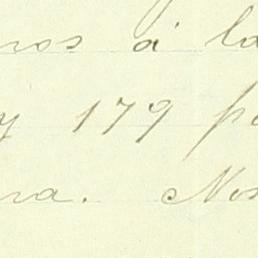 nos á la
y 179 p
na. Nos